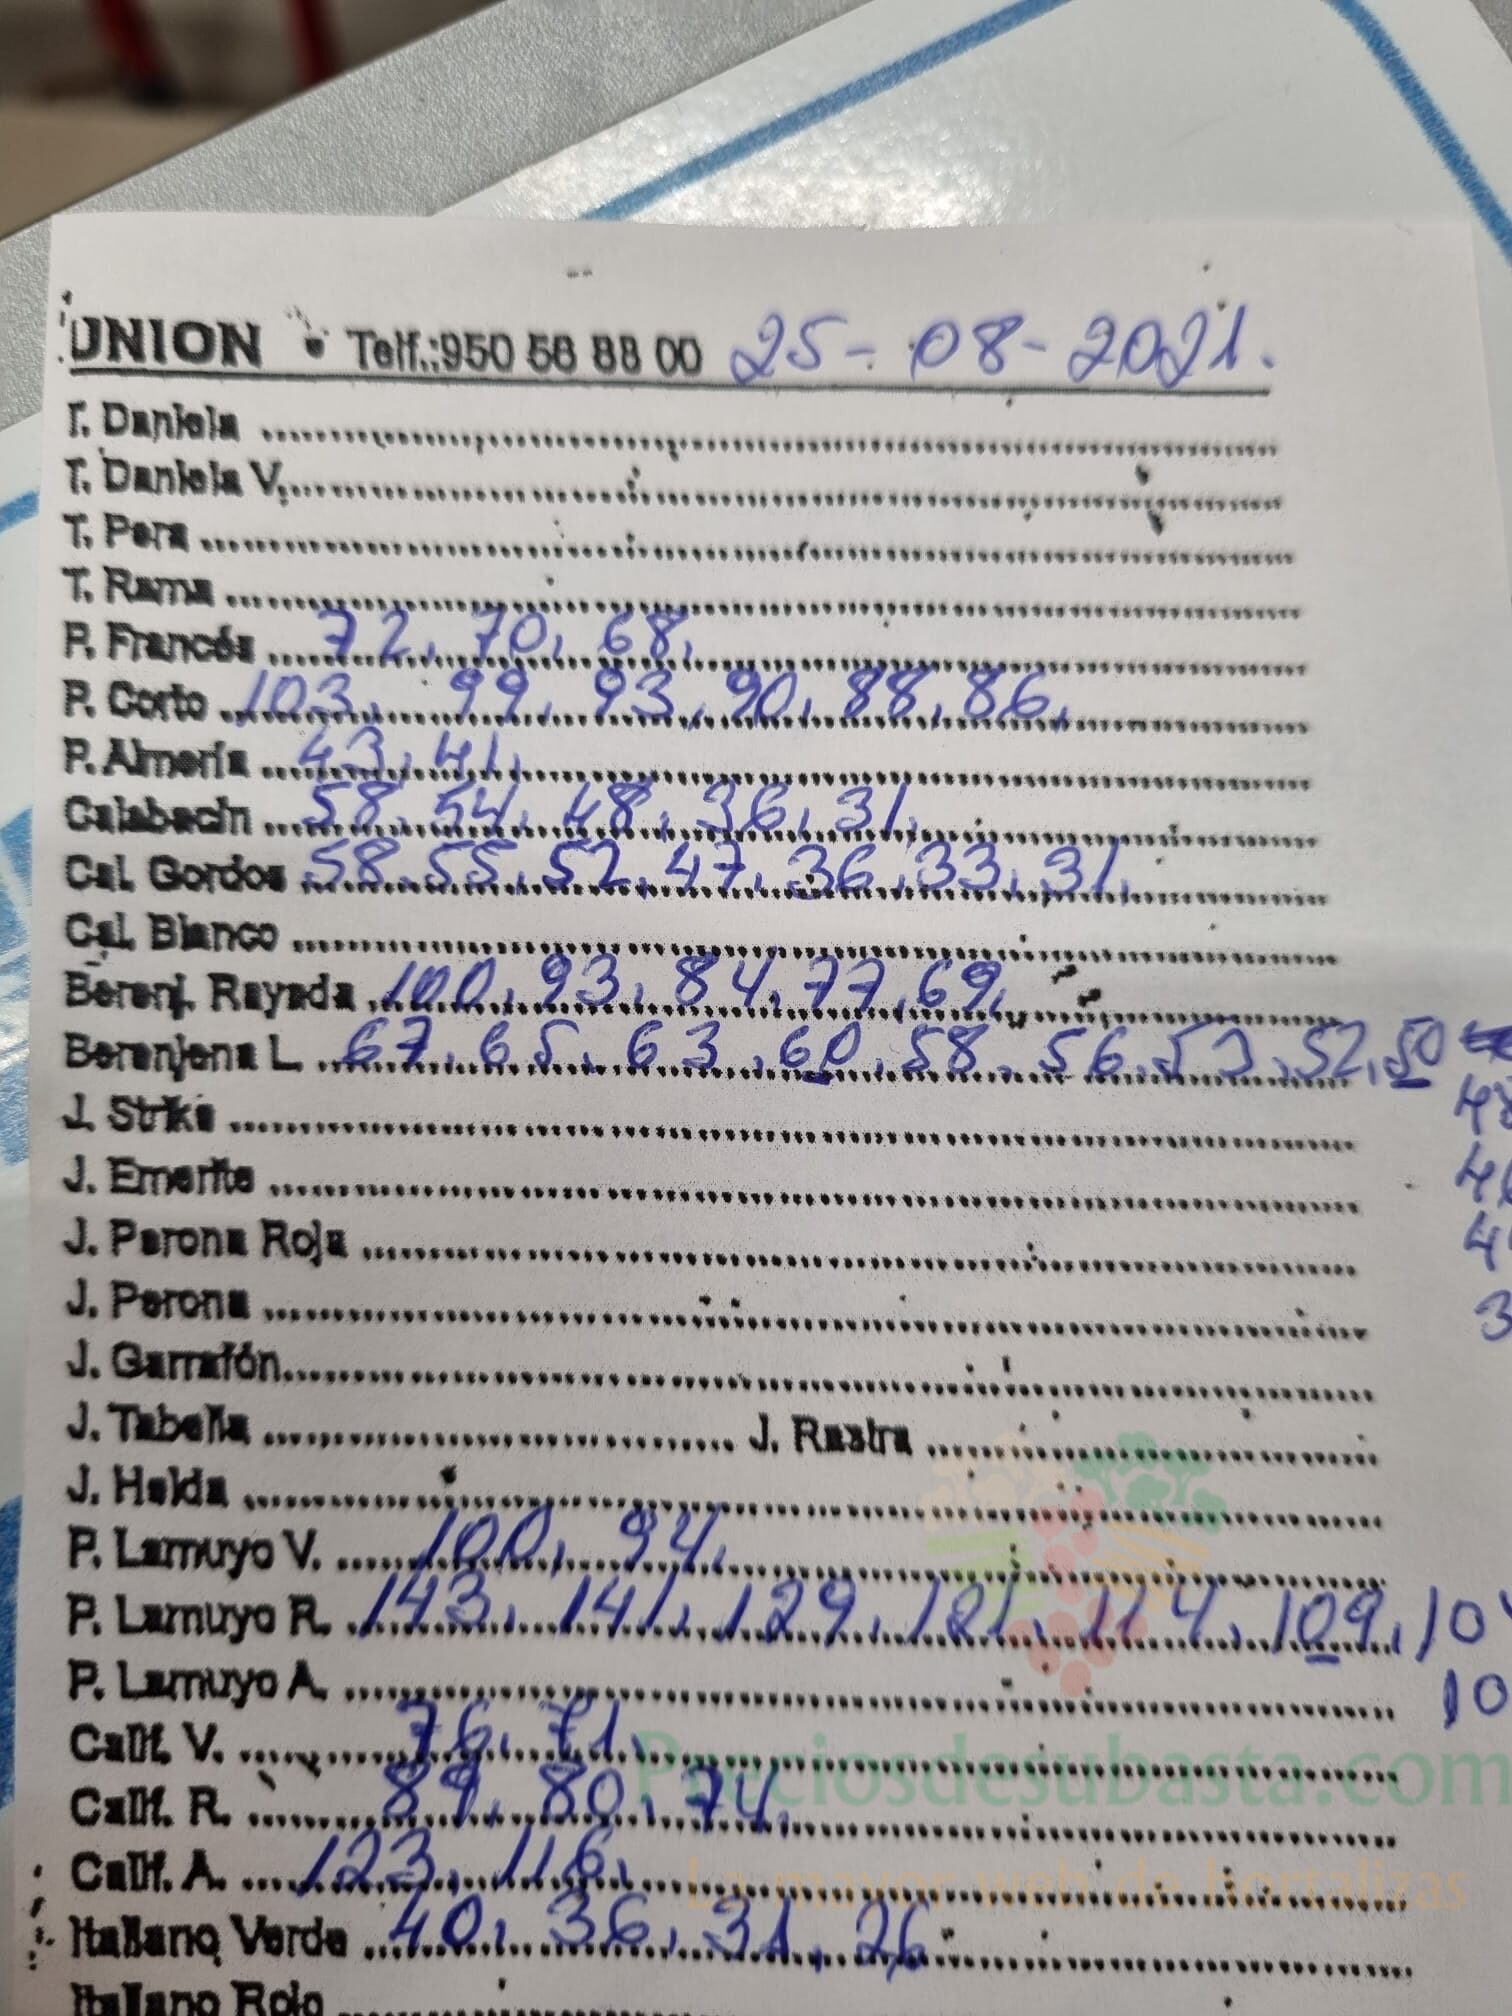 UNION Telf.:950 56 88 00 25-08-2021.
T. Daniela
T. Daniela V.
T. Pera
T. Rama
P. Francés 72, 70, 68,
P. Corto 103, 99, 93, 90, 88, 86,
P. Almería 43, 41,
Calabacín 58, 54, 48, 36, 31,
Cal. Gordos 58, 55, 52, 47, 36, 33, 31,
Cal. Blanco
Berenj. Rayada 100, 93, 84, 77, 69,
Berenjena L. 67, 65, 63, 60, 58, 56, 53, 52, 50
J. Strike
J. Emerite
J. Perona Roja
J. Perona
J. Garrafón
J. Tabella J. Rastra
J. Helda
P. Lamuyo V. 100, 94,
P. Lamuyo R. 143, 141, 129, 121, 114, 109, 10
P. Lamuyo A. 10
Calif. V. 76, 71,
Calif. R. 89, 80, 74,
Calif. A. 123, 116,
Italiano Verde 40, 36, 31, 26
Italiano Rojo
Preciosdesubasta.com
La mayor web de hortalizas